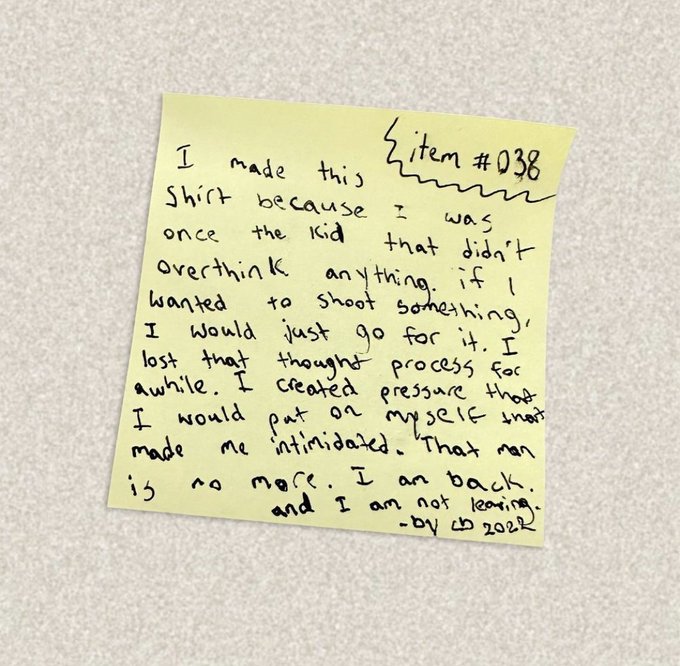 item #038
I made this
Shirt because I was
once the kid that didn't
overthink anything. if I
wanted to shoot something,
I would just go for it. I
lost that thought process for
awhile. I created pressure that
I would put on myself that
made me intimidated. That man
is no more. I am back.
and I am not leaving.
-by LB 2022